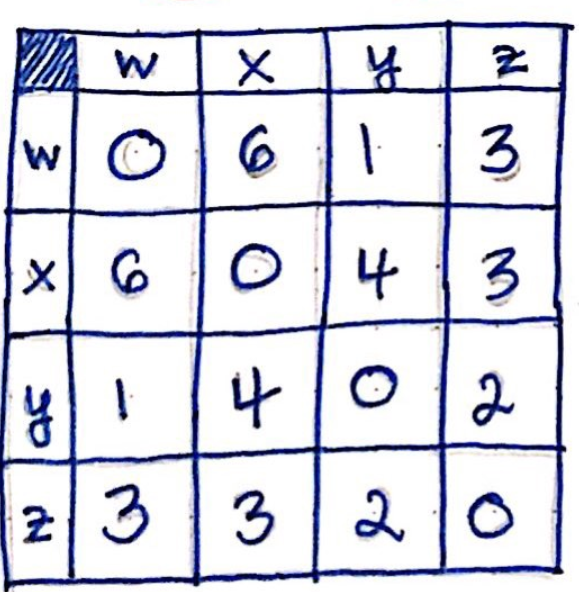 w x y z
w 0 6 1 3
x 6 0 4 3
y 1 4 0 2
z 3 3 2 0